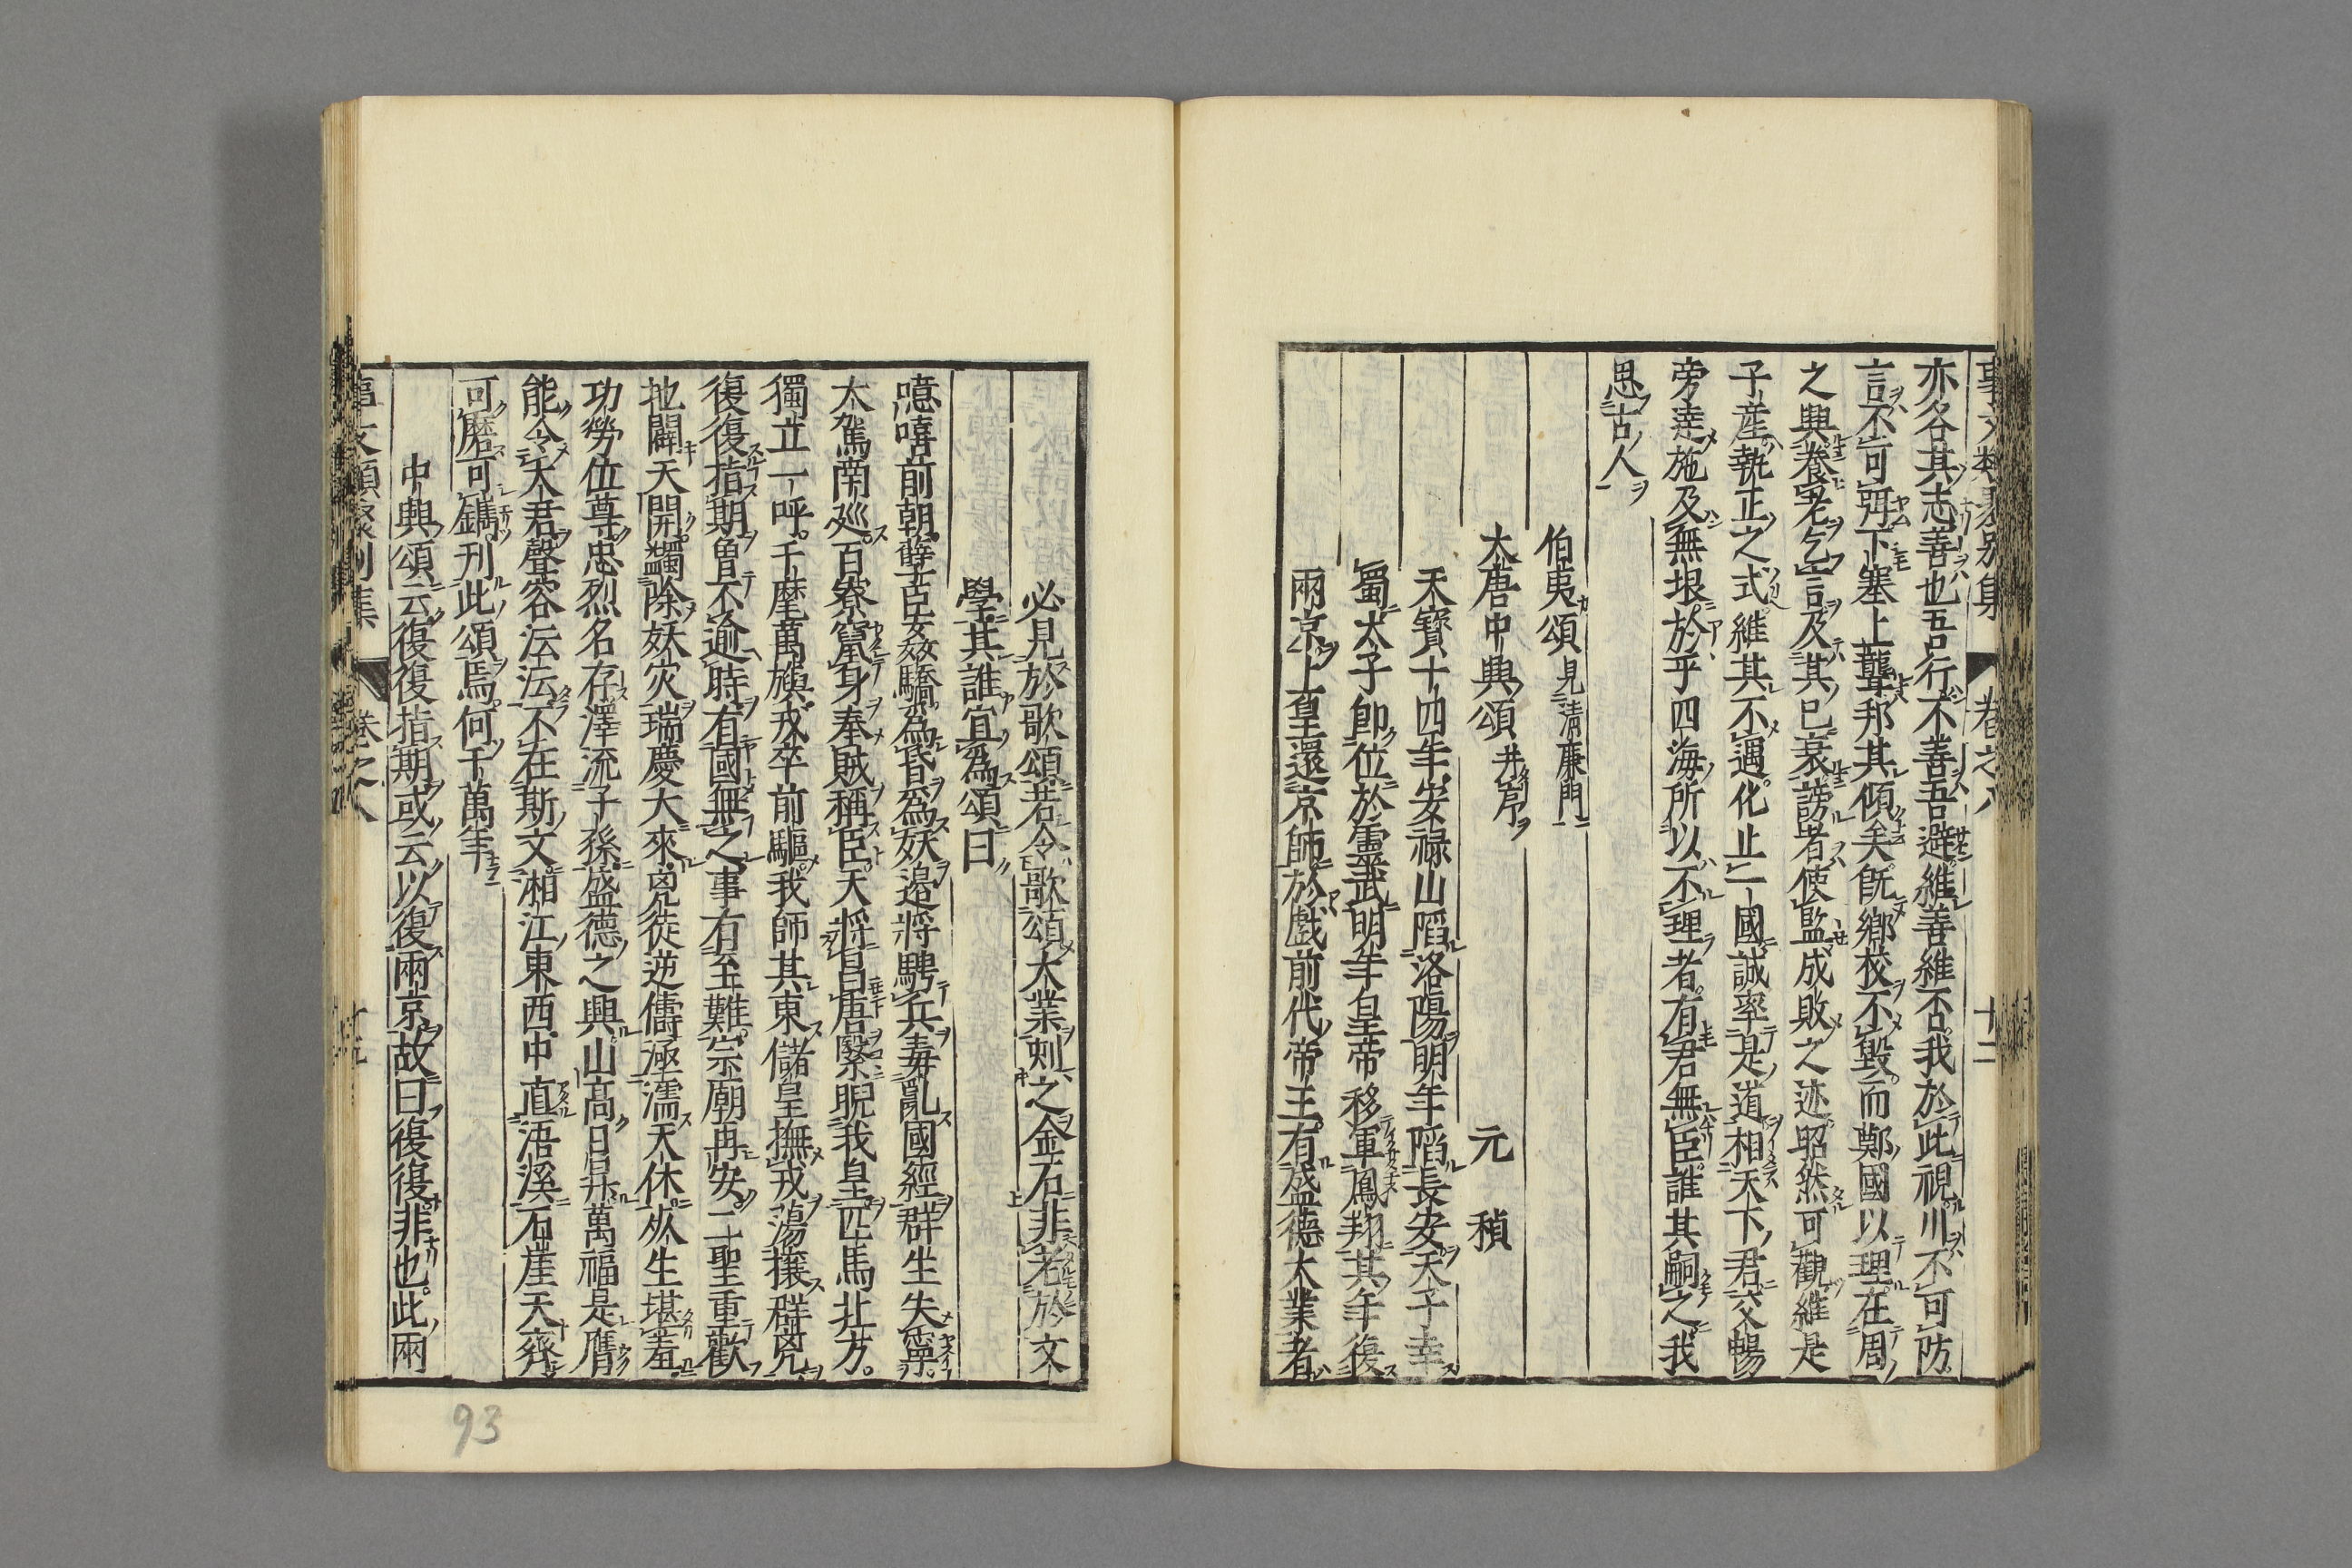 亦各其志善也吾行不善吾避維善維否我於此視川不可防
言不可弭下塞上聾邦其傾矣既鄉校不毀而鄭國以理在周
之興養老乞言及其已衰謗者使監成敗之迹昭然可觀維是
子產執正之式維其不遇化止一國誠率是道相天下君交暢
旁達施及無垠於乎四海所以不理者有君無臣誰其嗣之我
思古人
伯夷頌 見清廉門
大唐中興頌 并序 元 稹
天寶十四年安祿山陷洛陽明年陷長安天子幸
蜀太子即位於靈武明年皇帝移軍鳳翔其年復
兩京上皇還京師於戲前代帝王有盛德大業者
必見於歌頌若今歌頌大業刻之金石非老於文
學其誰宜為頌曰
噫嘻前朝孽臣姦驕為昏為妖邊將騁兵毒亂國經群生失寧
大駕南巡百寮竄身奉賊稱臣天將昌唐繄睨我皇匹馬北方
獨立一呼千麾萬旟戎卒前驅我師其東儲皇撫戎蕩攘群兇
復復指期曾不逾時有國無之事有至難宗廟再安二聖重歡
地闢天開蠲除妖灾瑞慶大來兇徒逆儔涵濡天休死生堪羞
功勞位尊忠烈名存澤流子孫盛德之興山高日昇萬福是膺
能令大君聲容沄沄不在斯文湘江東西中直浯溪石崖天齊
可磨可鐫刊此頌焉何千萬年
中興頌云復復指期或云以復兩京故曰復復非也此兩
卷之八